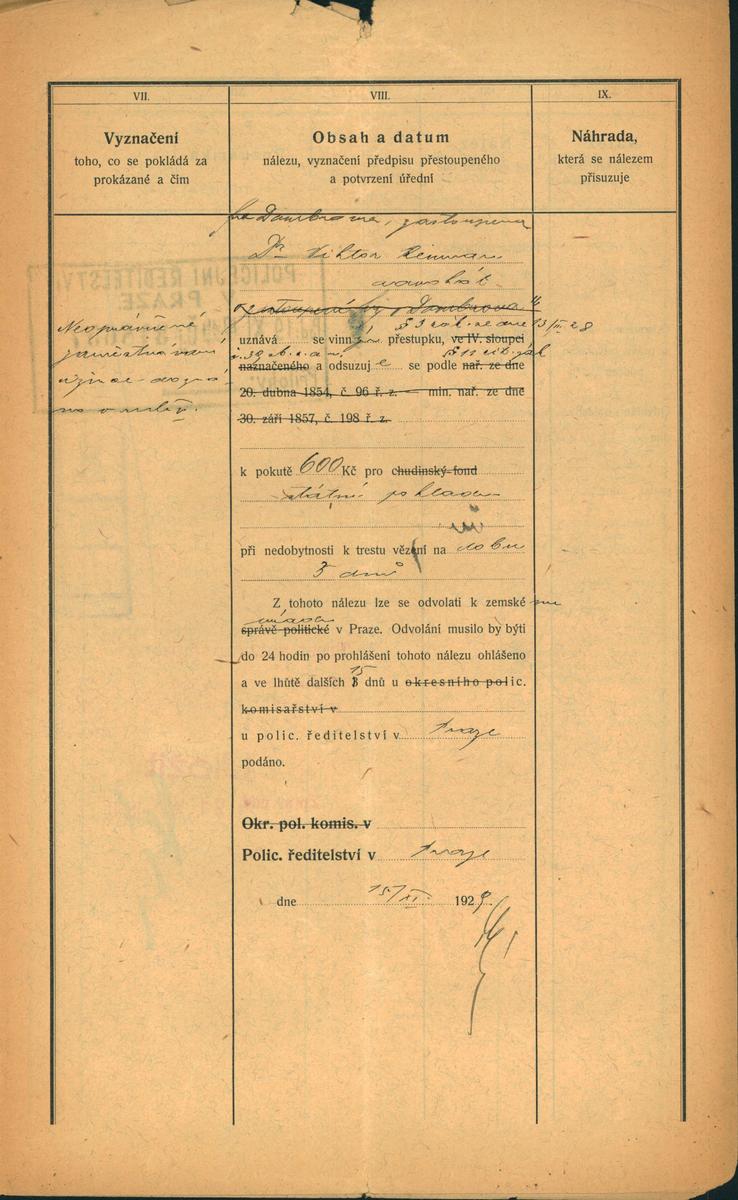 VII.
Vyznačení
toho, co se pokládá za
prokázané a čím
VIII.
Obsah a datum
nálezu, vyznačení předpisu přestoupeného
a potvrzení úřední
IX.
Náhrada,
která se nálezem
přisuzuje
Neoprávněné
zaměstnávání
fa Dombrowa, zastoupena
Dr Viktor
zastoupený Dombrowa
§ 3 zák. ze dne 13/III 28
uznává se vinn přestupku, ve IV. sloupci
č. 39 sb. z. a n. § 12 cit. zák
naznačeného a odsuzuje se podle nař. ze dne
20. dubna 1854, č. 96 ř. z. min. nař. ze dne
30. září 1857, č. 198 ř. z.
k pokutě 600 Kč pro chudinský fond
státní pokladnu
při nedobytnosti k trestu vězení na dobu
3 dnů
Z tohoto nálezu lze se odvolati k zemské mu
úřadu
správě politické v Praze. Odvolání musilo by býti
do 24 hodin po prohlášení tohoto nálezu ohlášeno
15
a ve lhůtě dalších 3 dnů u okresního polic.
komisařství v
u polic. ředitelství v Praze
podáno.
Okr. pol. komis. v
Polic. ředitelství v Praze
dne 15/XI. 1929.